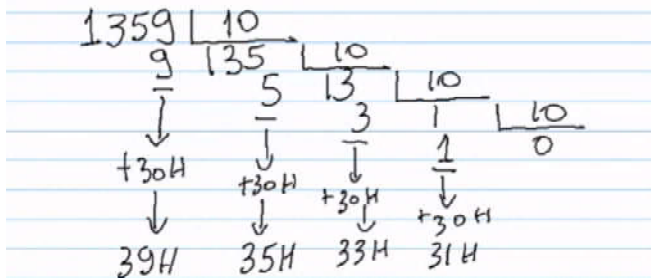 1359 10
9 135 10
5 13 10
3 1 10
1 0
+30H +30H +30H +30H
39H 35H 33H 31H